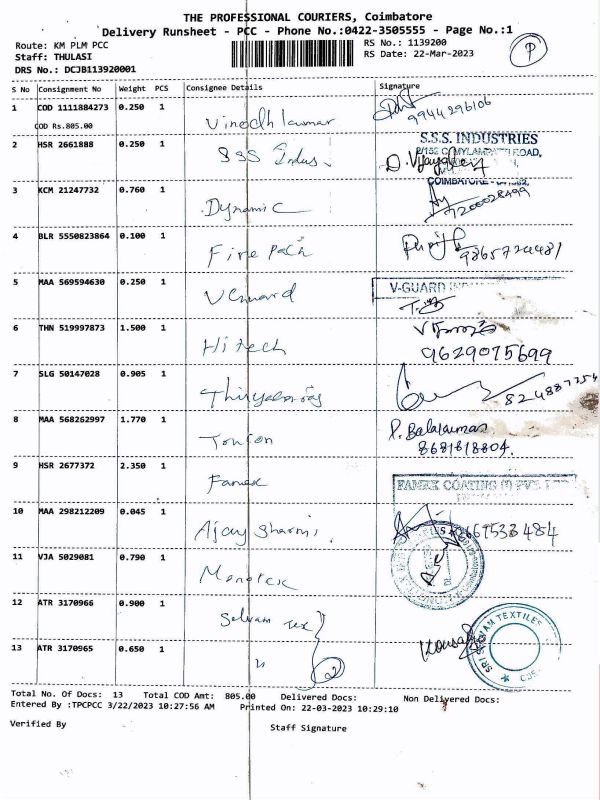 THE PROFESSIONAL COURIERS, Coimbatore
Delivery Runsheet - PCC - Phone No.:0422-3505555 - Page No.:1
Route: KM PLM PCC
RS No.: 1139200
P
Staff: THULASI
RS Date: 22-Mar-2023
DRS No.: DCJB113920001
S No Consignment No Weight PCS Consignee Details Signature
1 COD 1111884273 0.250 1 Vinodh kumar 9944296106
COD Rs.805.00
2 HSR 2661888 0.250 1 SSS Indus. S.S.S. INDUSTRIES
ROAD,
D. Vijaya
3 KCM 21247732 0.760 1 Dynamic COIMBATORE
7200028499
4 BLR 5550823864 0.100 1 Fire Pach 9865724481
5 MAA 569594630 0.250 1 VGuard V-GUARD
6 THN 519997873 1.500 1 Hitech
9629075699
7 SLG 50147028 0.905 1 824887254
8 MAA 568262997 1.770 1 P. Balakumar
8681818804.
9 HSR 2677372 2.350 1 Famex FAMEX COATING (I) PVT. LTD
10 MAA 298212209 0.045 1 Ajay Sharmi.
11 VJA 5029081 0.790 1 Monotex
12 ATR 3170966 0.900 1 Selvam Tex
13 ATR 3170965 0.650 1 " 2 SRI SELVAM TEXTILES
Total No. Of Docs: 13 Total COD Amt: 805.00 Delivered Docs: Non Delivered Docs:
Entered By :TPCPCC 3/22/2023 10:27:56 AM Printed On: 22-03-2023 10:29:10
Verified By Staff Signature